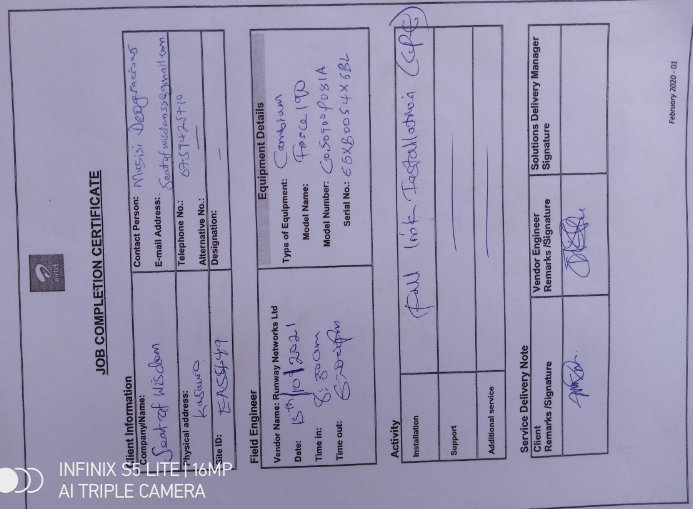 airtel
JOB COMPLETION CERTIFICATE
Client Information
Company/Name:
Seat of Wisdom
Physical address:
Kasawo
Site ID: EASS449
Contact Person: Musisi Deogracious
E-mail Address: Seatofwisdomsss@gmail.com
Telephone No.: 0759425710
Alternative No.: —
Designation: —
Field Engineer
Vendor Name: Runway Networks Ltd
Date: 13th/10/2021
Time in: 8:30am
Time out: 6:00pm
Equipment Details
Type of Equipment: Cambium
Model Name: Force 190
Model Number: C050900P081A
Serial No.: E8XB0054X6BL
Activity
Installation
Full link Installation (CPE)
Support
Additional service
Service Delivery Note
Client
Remarks /Signature
Vendor Engineer
Remarks /Signature
Solutions Delivery Manager
Signature
February 2020 - 01
INFINIX S5 LITE | 16MP
AI TRIPLE CAMERA